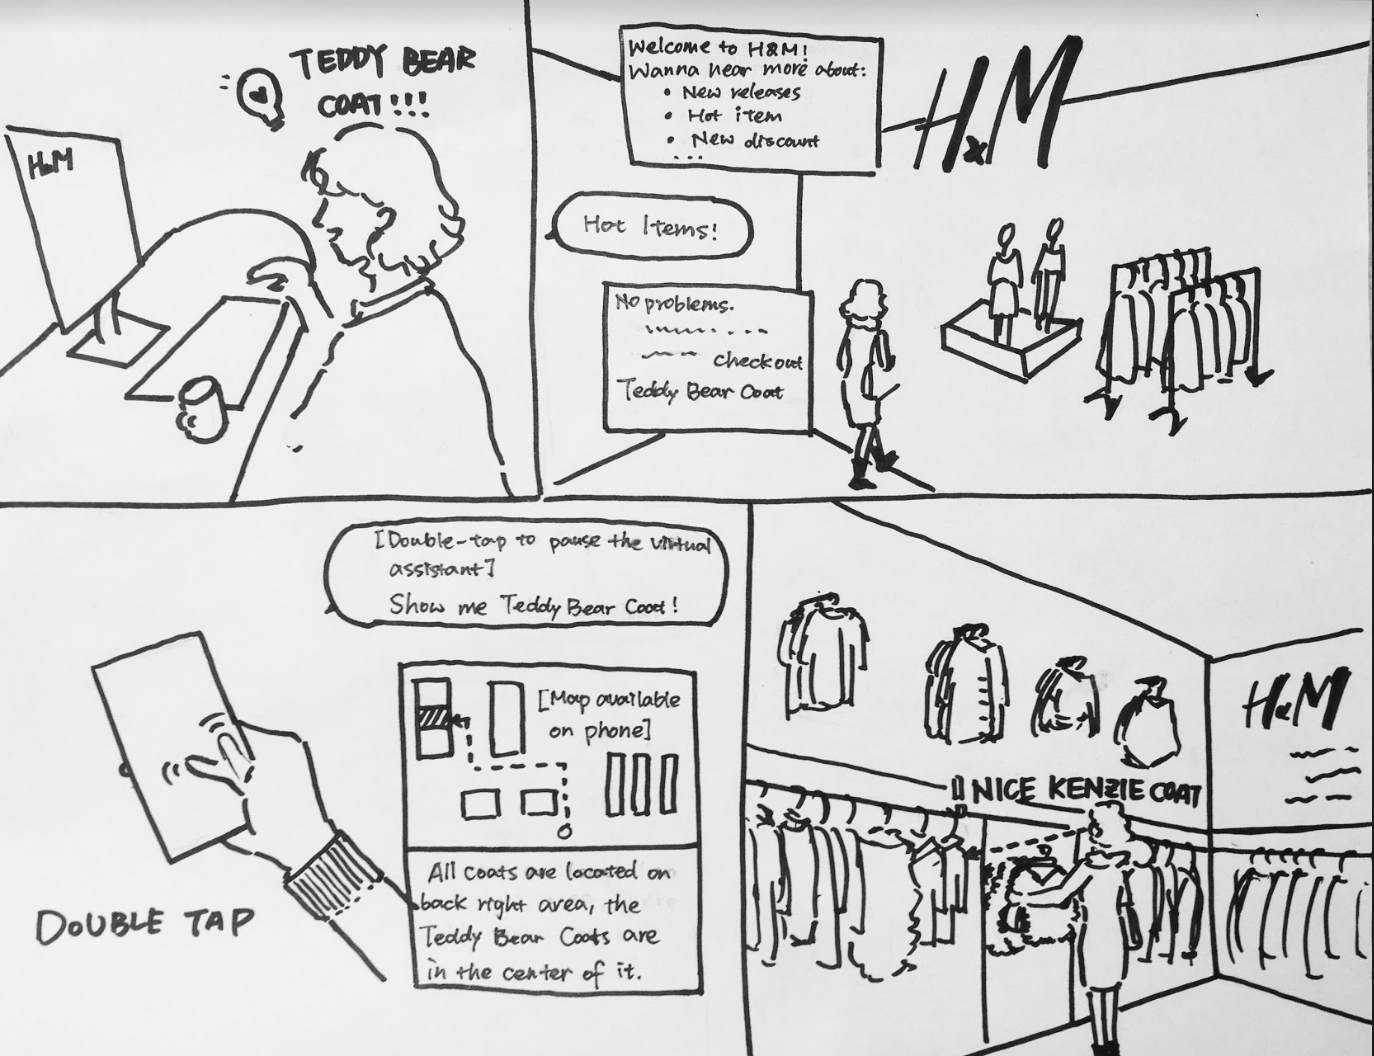 H&M
TEDDY BEAR
COAT!!!
Welcome to H&M!
Wanna hear more about:
• New releases
• Hot item
• New discount
...
H&M
Hot Items!
No problems.
checkout
Teddy Bear Coat
[Double-tap to pause the virtual
assistant]
Show me Teddy Bear Coat!
[Map available
on phone]
All coats are located on
back right area, the
Teddy Bear Coats are
in the center of it.
DOUBLE TAP
H&M
NICE KENZIE COAT